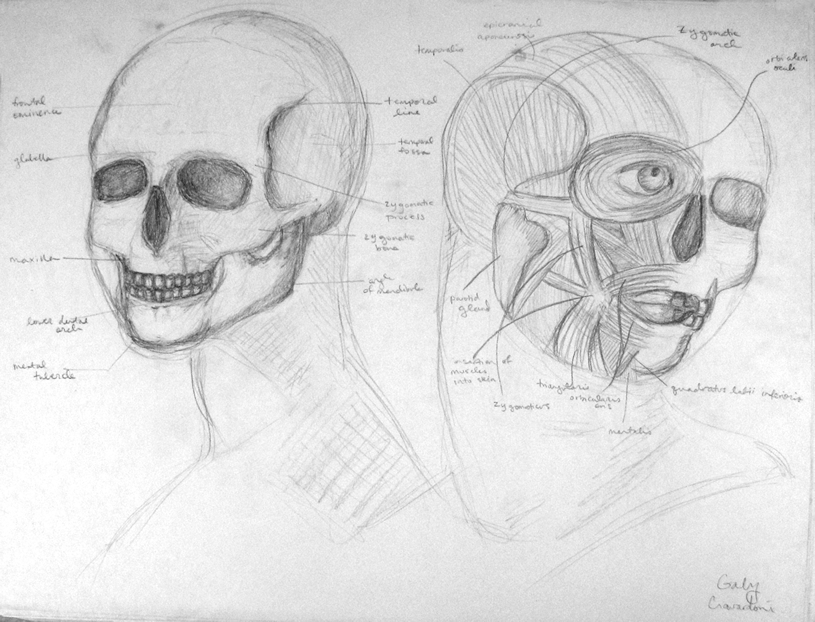 frontal
eminence
glabella
maxilla
lower dental
arch
mental
tubercle
temporal
line
temporal
fossa
zygomatic
process
zygomatic
bone
angle
of mandible
epicranial
aponeurosis
temporalis
zygomatic
arch
orbicularis
oculi
parotid
gland
insertion of
muscles
into skin
zygomaticus
triangularis
orbicularis
oris
mentalis
quadratus labii inferioris
Gaby